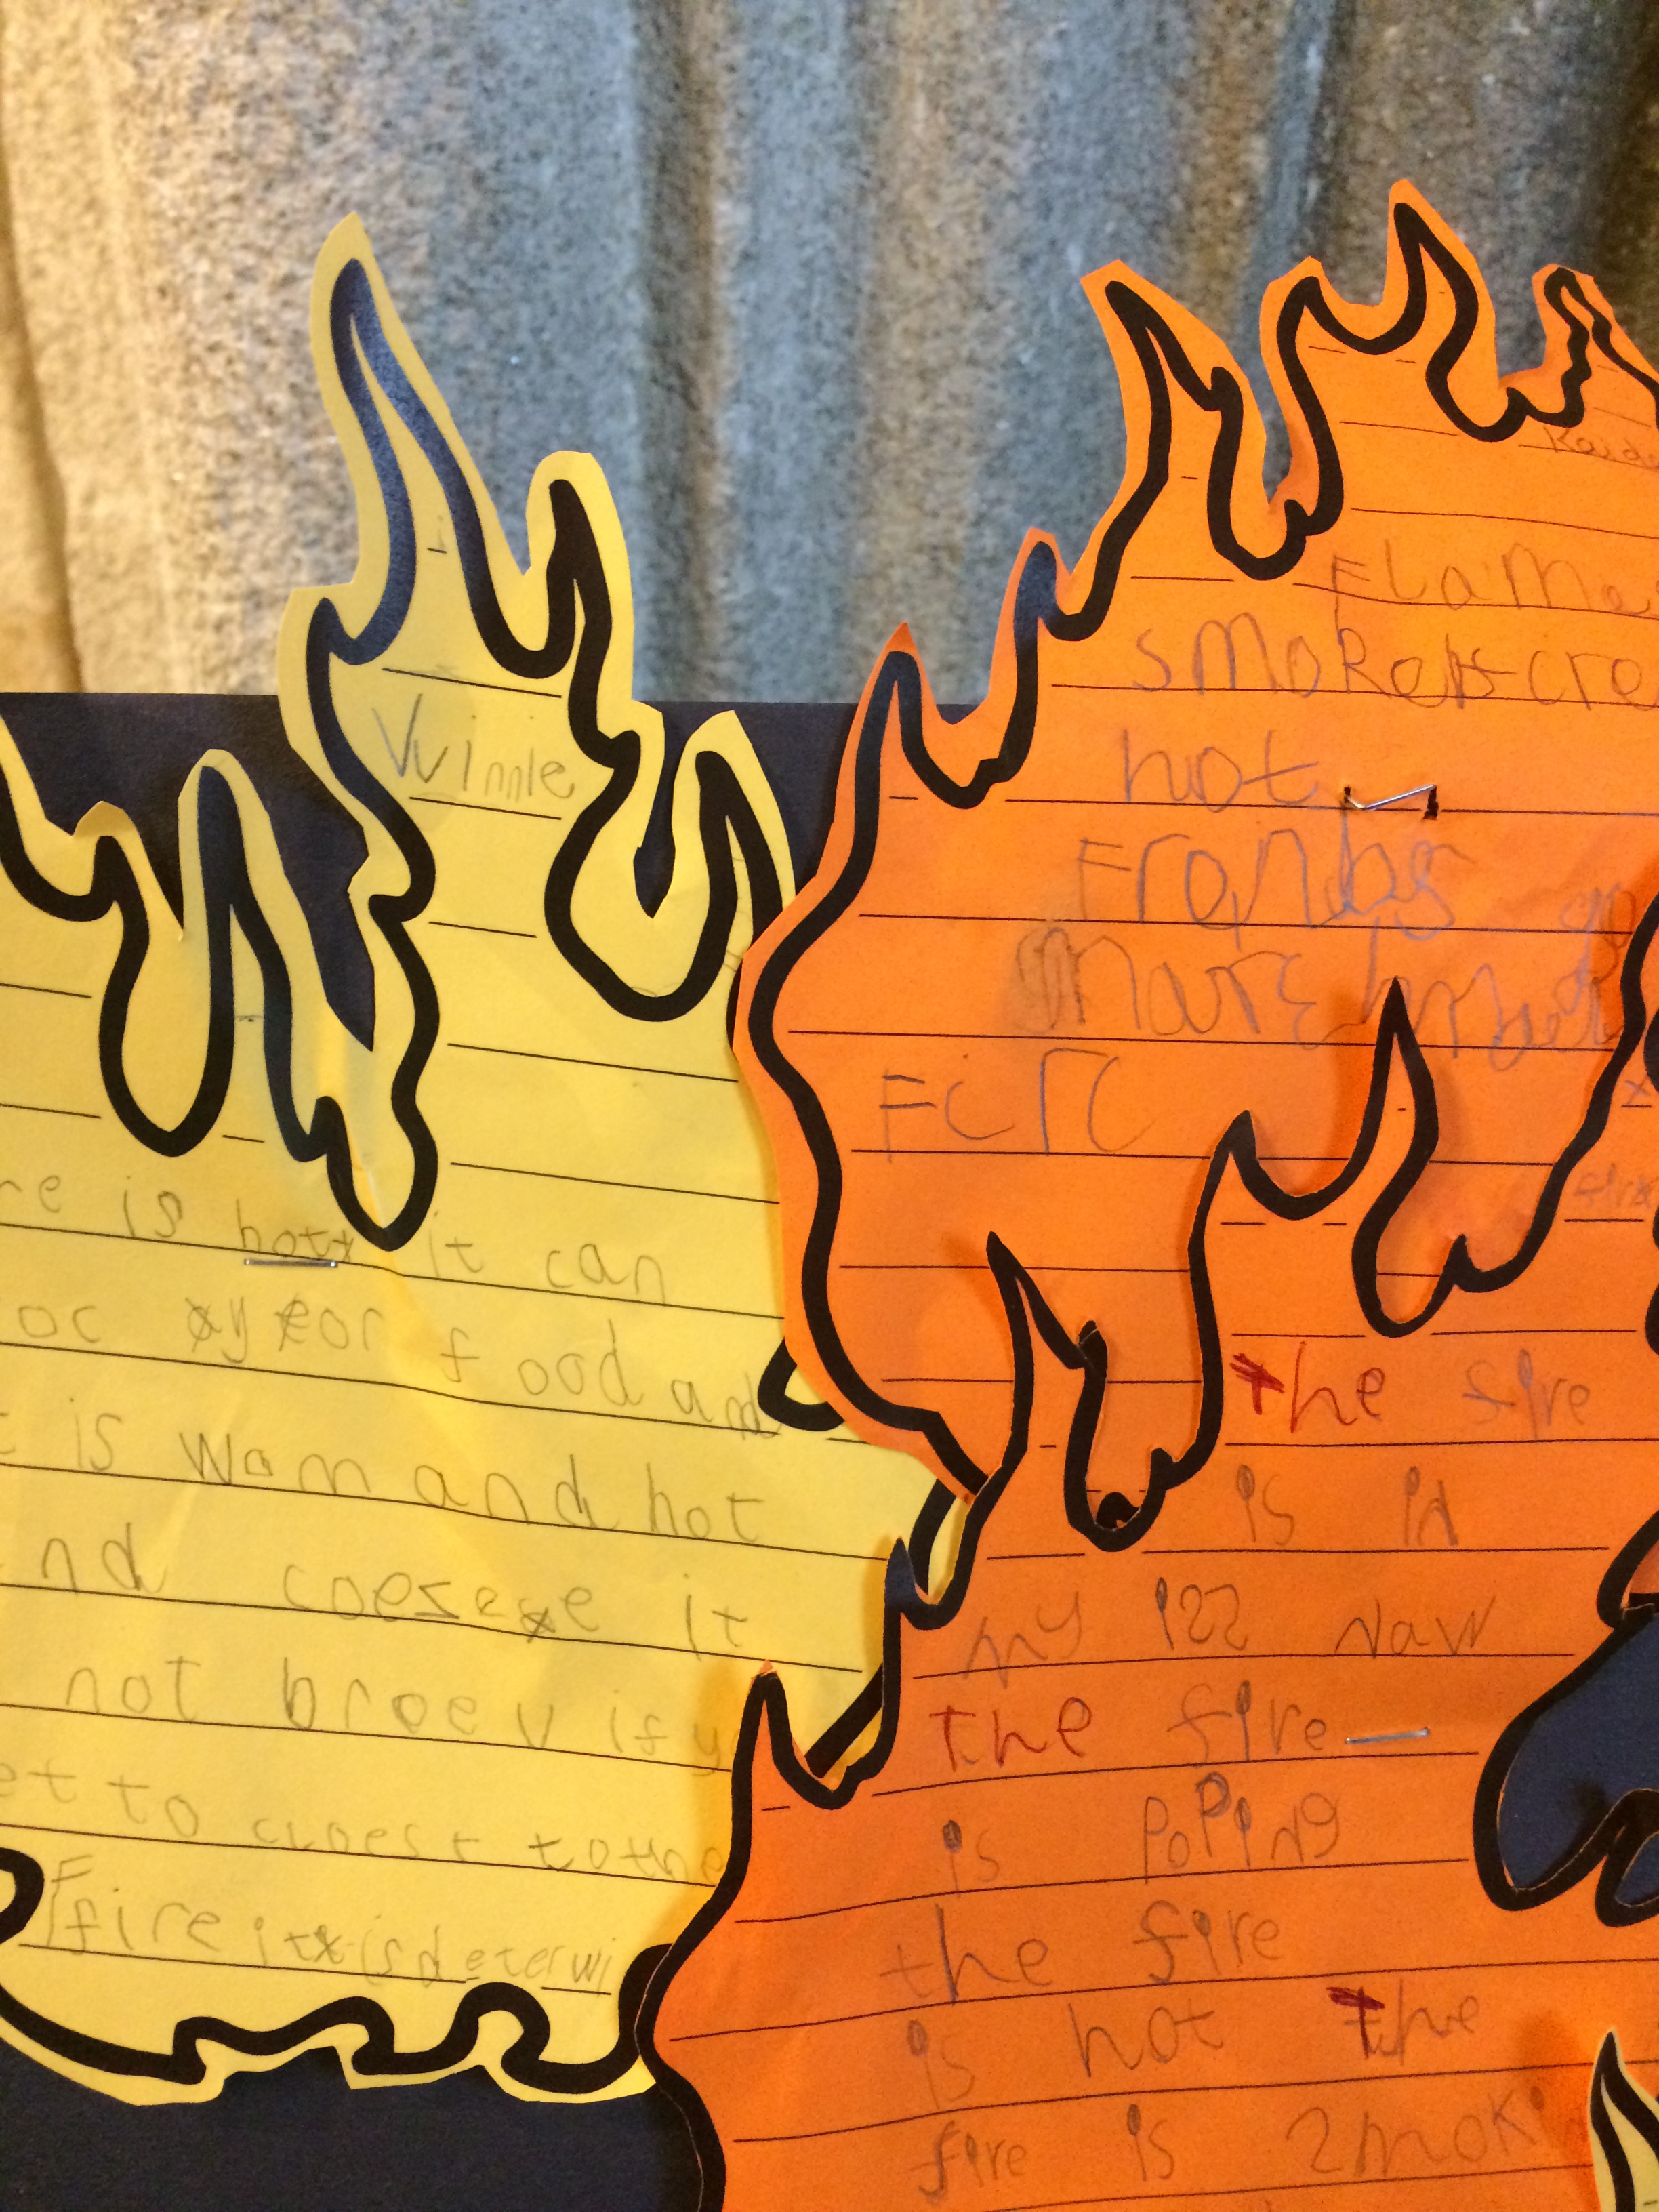 Winnie
re is hot it can
oc yeor food and
t is wam and hot
nd coesee it
not broev if y
et to cloest to the
fire it is deterwi
Kaide
Flames
smoke cre
hot
Fire
the fire
is in
my izz naw
the fire
is poping
the fire
is hot the
fire is smokin